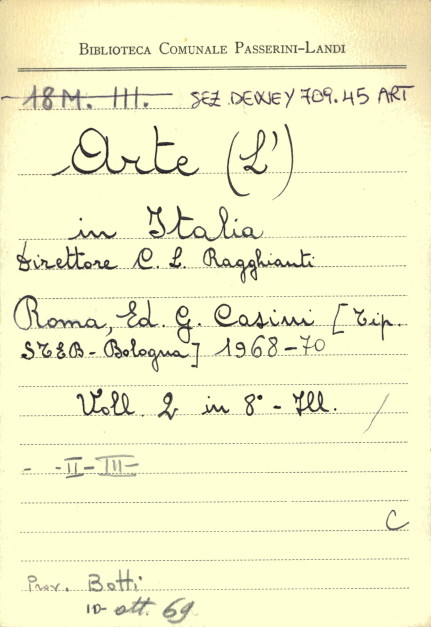 BIBLIOTECA COMUNALE PASSERINI-LANDI
18 M. III. SEZ DEWEY 709.45 ART
Arte (L')
in Italia
Direttore C. L. Ragghianti
Roma, Ed. G. Casini [Tip.
STEB-Bologna] 1968-70
Voll. 2 in 8° - Ill. /
- -II-III-
C
Prov. Botti
ID- ott. 69